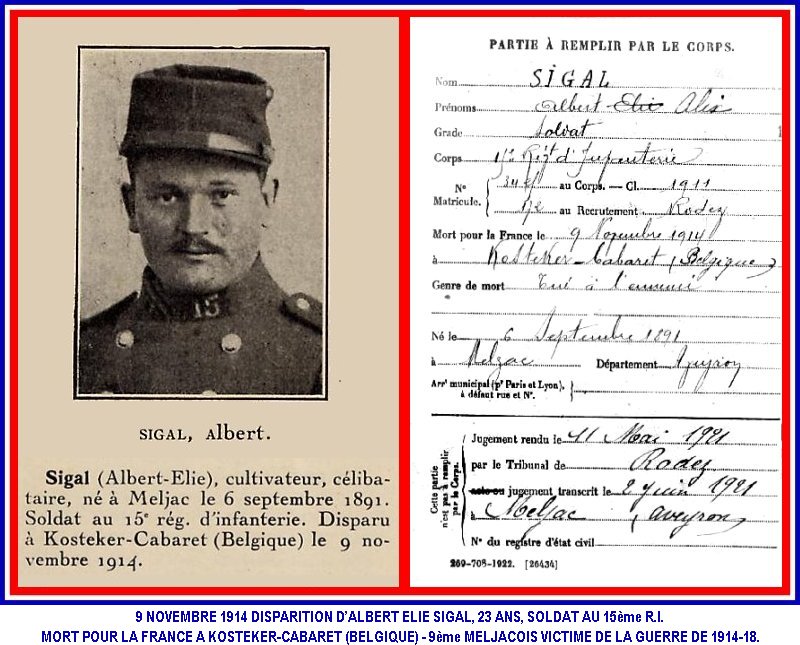 15
SIGAL, Albert.
Sigal (Albert-Elie), cultivateur, céliba-
taire, né à Meljac le 6 septembre 1891.
Soldat au 15e rég. d'infanterie. Disparu
à Kosteker-Cabaret (Belgique) le 9 no-
vembre 1914.
PARTIE À REMPLIR PAR LE CORPS.
Nom SIGAL
Prénoms Albert Elie Alis
Grade Soldat
Corps 15e Régt d'Infanterie
N° Matricule. au Corps. — Cl. 1911
au Recrutement Rodez
Mort pour la France le 9 Novembre 1914
à Kosteker-Cabaret (Belgique)
Genre de mort Tué à l'ennemi
Né le 6 Septembre 1891
à Melzac Département Aveyron
Arrt municipal (pr Paris et Lyon),
à défaut rue et N°.
Cette partie n'est pas à remplir par le Corps.
Jugement rendu le 11 Mai 1921
par le Tribunal de Rodez
acte ou jugement transcrit le 2 juin 1921
à Meljac (aveyron)
N° du registre d'état civil
269-708-1922. [26434]
9 NOVEMBRE 1914 DISPARITION D'ALBERT ELIE SIGAL, 23 ANS, SOLDAT AU 15ème R.I.
MORT POUR LA FRANCE A KOSTEKER-CABARET (BELGIQUE) - 9ème MELJACOIS VICTIME DE LA GUERRE DE 1914-18.